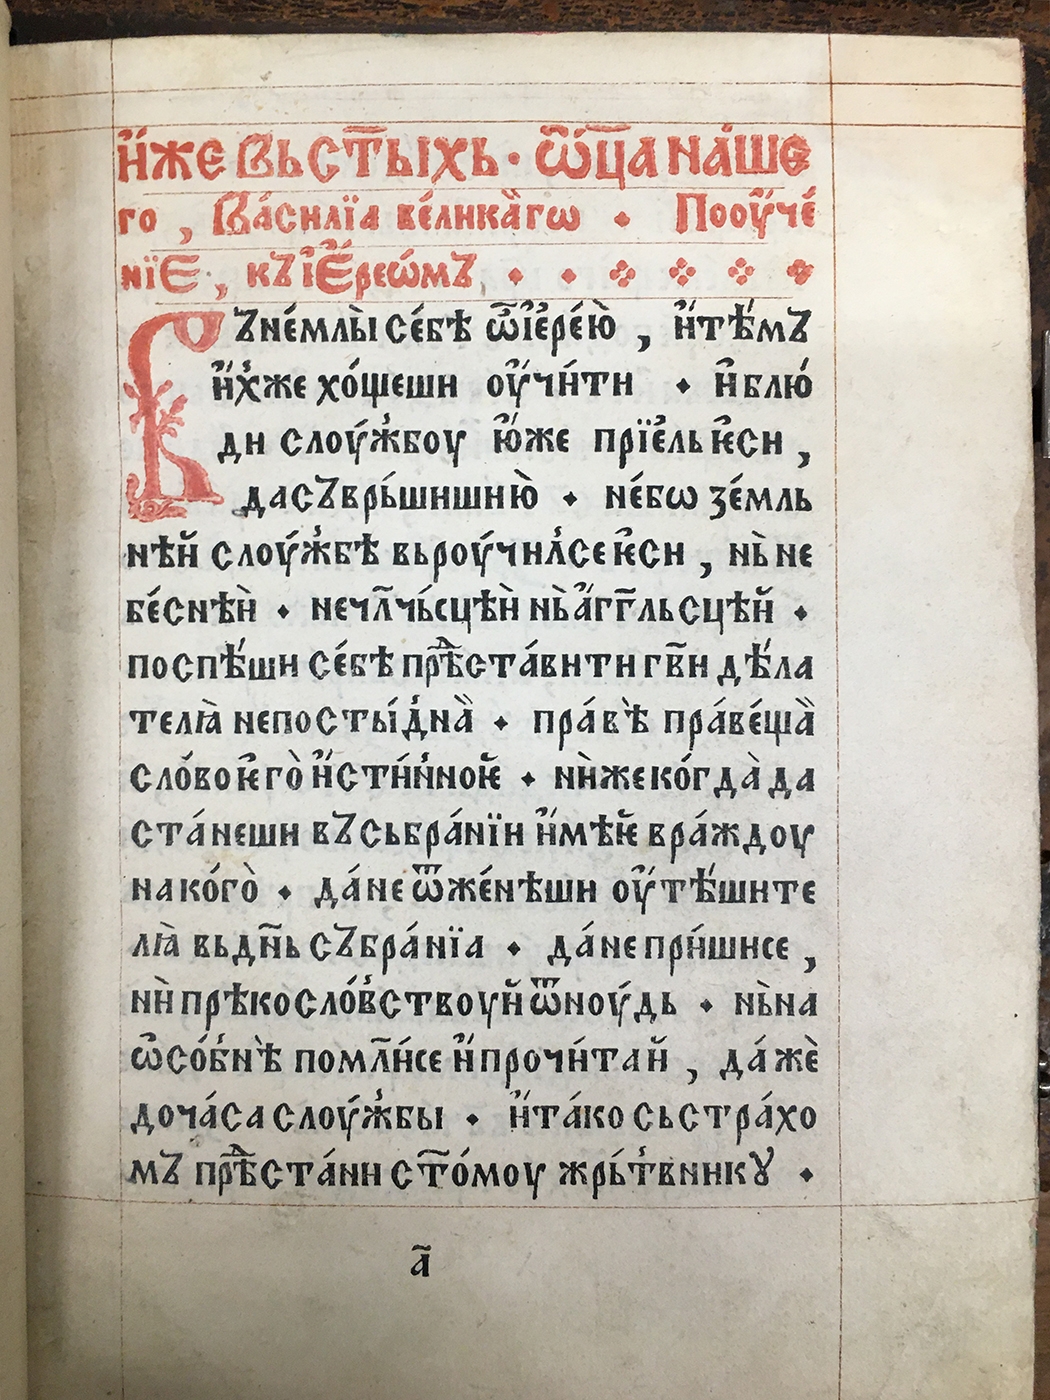 и҆́же вь ст҃ыхь · ѿц҃а на́ше
го , Васи́лїа вели́каⷢ҇гѡ · Поѹче́
нїе , къ і҆ере́ѡмъ
Въне́млы̀ се́бѣ ѽ і҆ере́ю̀ , и҆ тѣ́мъ
и҆́хже хо́щеши ѹ҆чи́ти · и҆ блю́
ди слѹ́жбоу ю҆́же прїе́ль ѥ҆си ,
да съврь́шиши ю̀ · не́бѡ зе́мль
нѣи̑ слѹ́жбѣ вьрѹ́чилсе ѥ҆си , нь̀ не
бе́снѣи̑ · не чл҃чь́сцѣи̑ нь̀ а҆́гг҃льсцѣи̑ ·
поспѣ́ши се́бѣ прѣⷣста́вити гв҃и дѣ́ла
телꙗ̀ непосты́дна̀ · пра́вѣ̀ пра́веща̀
сло́во ѥ҆го̀ и҆́сти́нноѥ̑ · ни̏же ко́гда̀ да
ста́неши въ сьбра́нїи и҆́мѣѥ̑ вра́ждоу
на ко́го̀ · да́ не ѿже́нѣши ѹ҆тѣ́шите
лꙗ̀ вь дн҃ь събра́нїа · да́ не при́шисе ,
ни̏ прѣкосло́вствѹи̑ ѿнѹ́дь · нь̀ на
ѡ҆со́бнѣ̀ помл҃и́се и҆ прочи́таи̑ , да́же̏
до ча́са слѹ́жбы · и҆ та́ко сь стра́хо
мъ прѣⷣста́ни ст҃о́моу жрь́твникꙋ ·
а҃